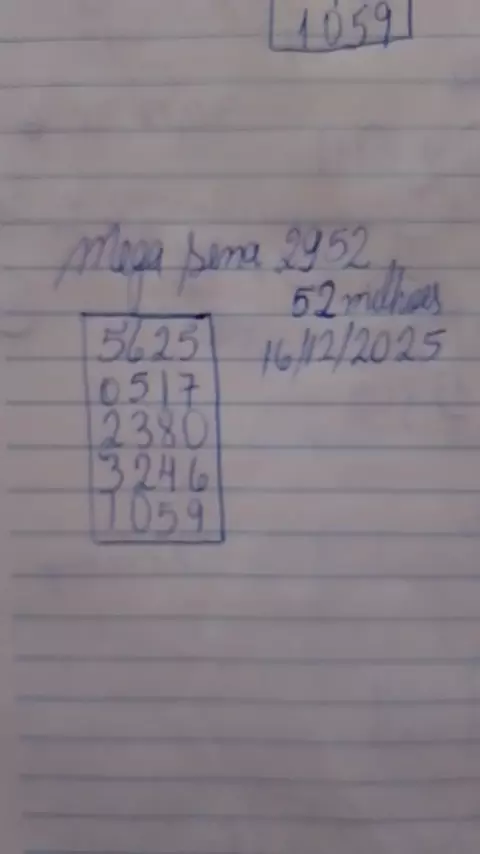 1059
Mega sena 2952
52 milhões
16/12/2025
5625
0517
2380
3246
1059